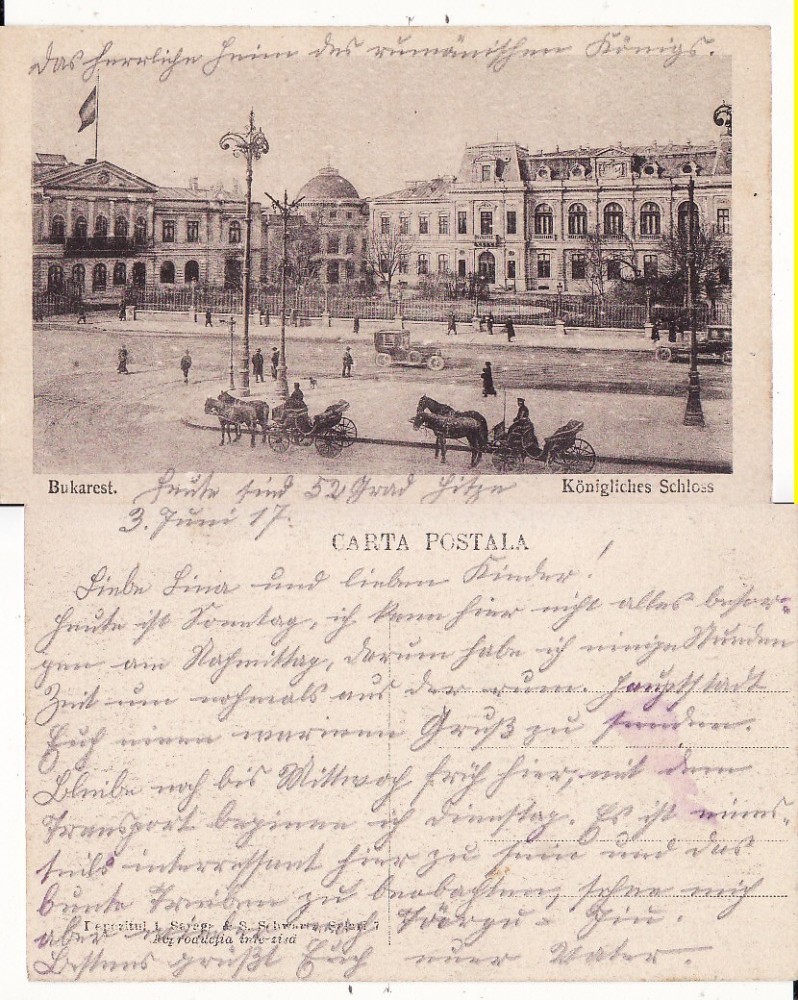 Das herrliche Heim des rumänischen Königs.
Bukarest. Heute sind 52 Grad Hitze Königliches Schloss
3. Juni 17.
CARTA POSTALA
Liebe Lina und lieben Kinder!
Heute ist Sonntag, ich kann hier nicht alles besor-
gen am Nahmittag, darum habe ich einige Stunden
Zeit um nohmals aus der rum. Hauptstadt
Euch einen warmen Gruß zu senden.
Bleibe noch bis Mittwoch früh hier, mit dem
Transport beginne ich Dienstag. Es ist eines-
teils interressant hier zu sein und das
bunte Treiben zu beobachten, sehne mich
aber nach Târgu-Jiu.
Depozitul I. S. Schwartz
Reproducția interzisă
Bestens grüßt Euch euer Vater.